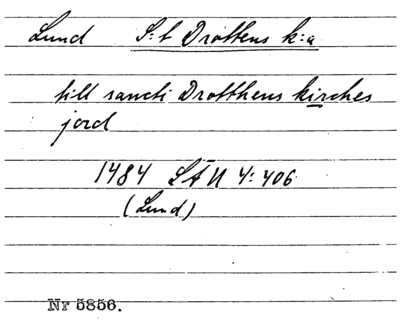 Lund S:t Drottens k:a
till sancti Drotthens kirches
jord
1484 LÄU 4:406
(Lund)
Nr 5856.